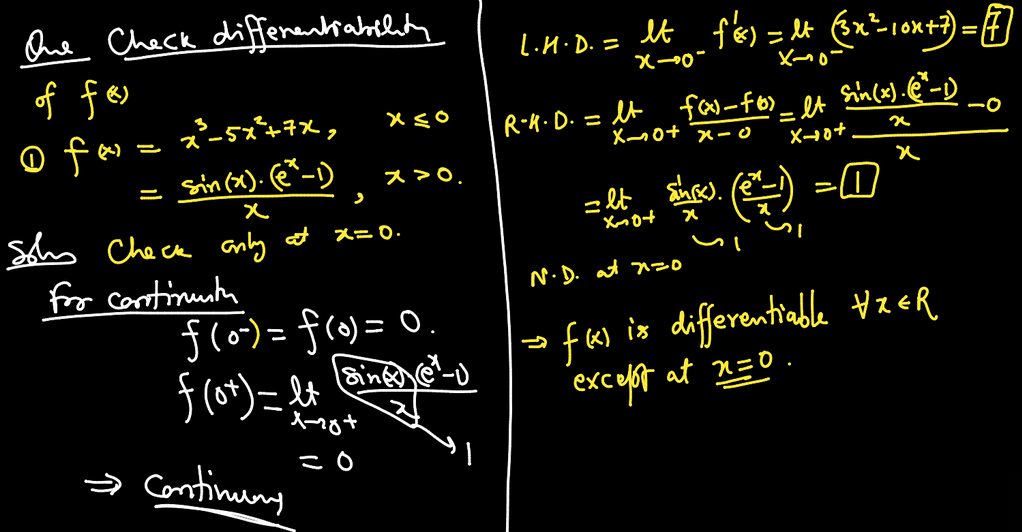 Que Check differentiability
of f(x)
① f(x) = x³ - 5x² + 7x, x ≤ 0
= sin(x)·(eˣ-1)/x, x > 0.
Soln Check only at x=0.
for continuity
f(0⁻) = f(0) = 0.
f(0⁺) = lt x→0+ sin(x)(eˣ-1)/x → 1
= 0
⇒ Continuous
L.H.D. = lt x→0⁻ f'(x) = lt x→0⁻ (3x²-10x+7) = 7
R.H.D. = lt x→0+ f(x)-f(0)/x-0 = lt x→0+ sin(x)·(eˣ-1)/x - 0 / x
= lt x→0+ sin(x)/x · (eˣ-1/x) = 1
1 1
N.D. at x=0
⇒ f(x) is differentiable ∀ x ∈ R
except at x=0.